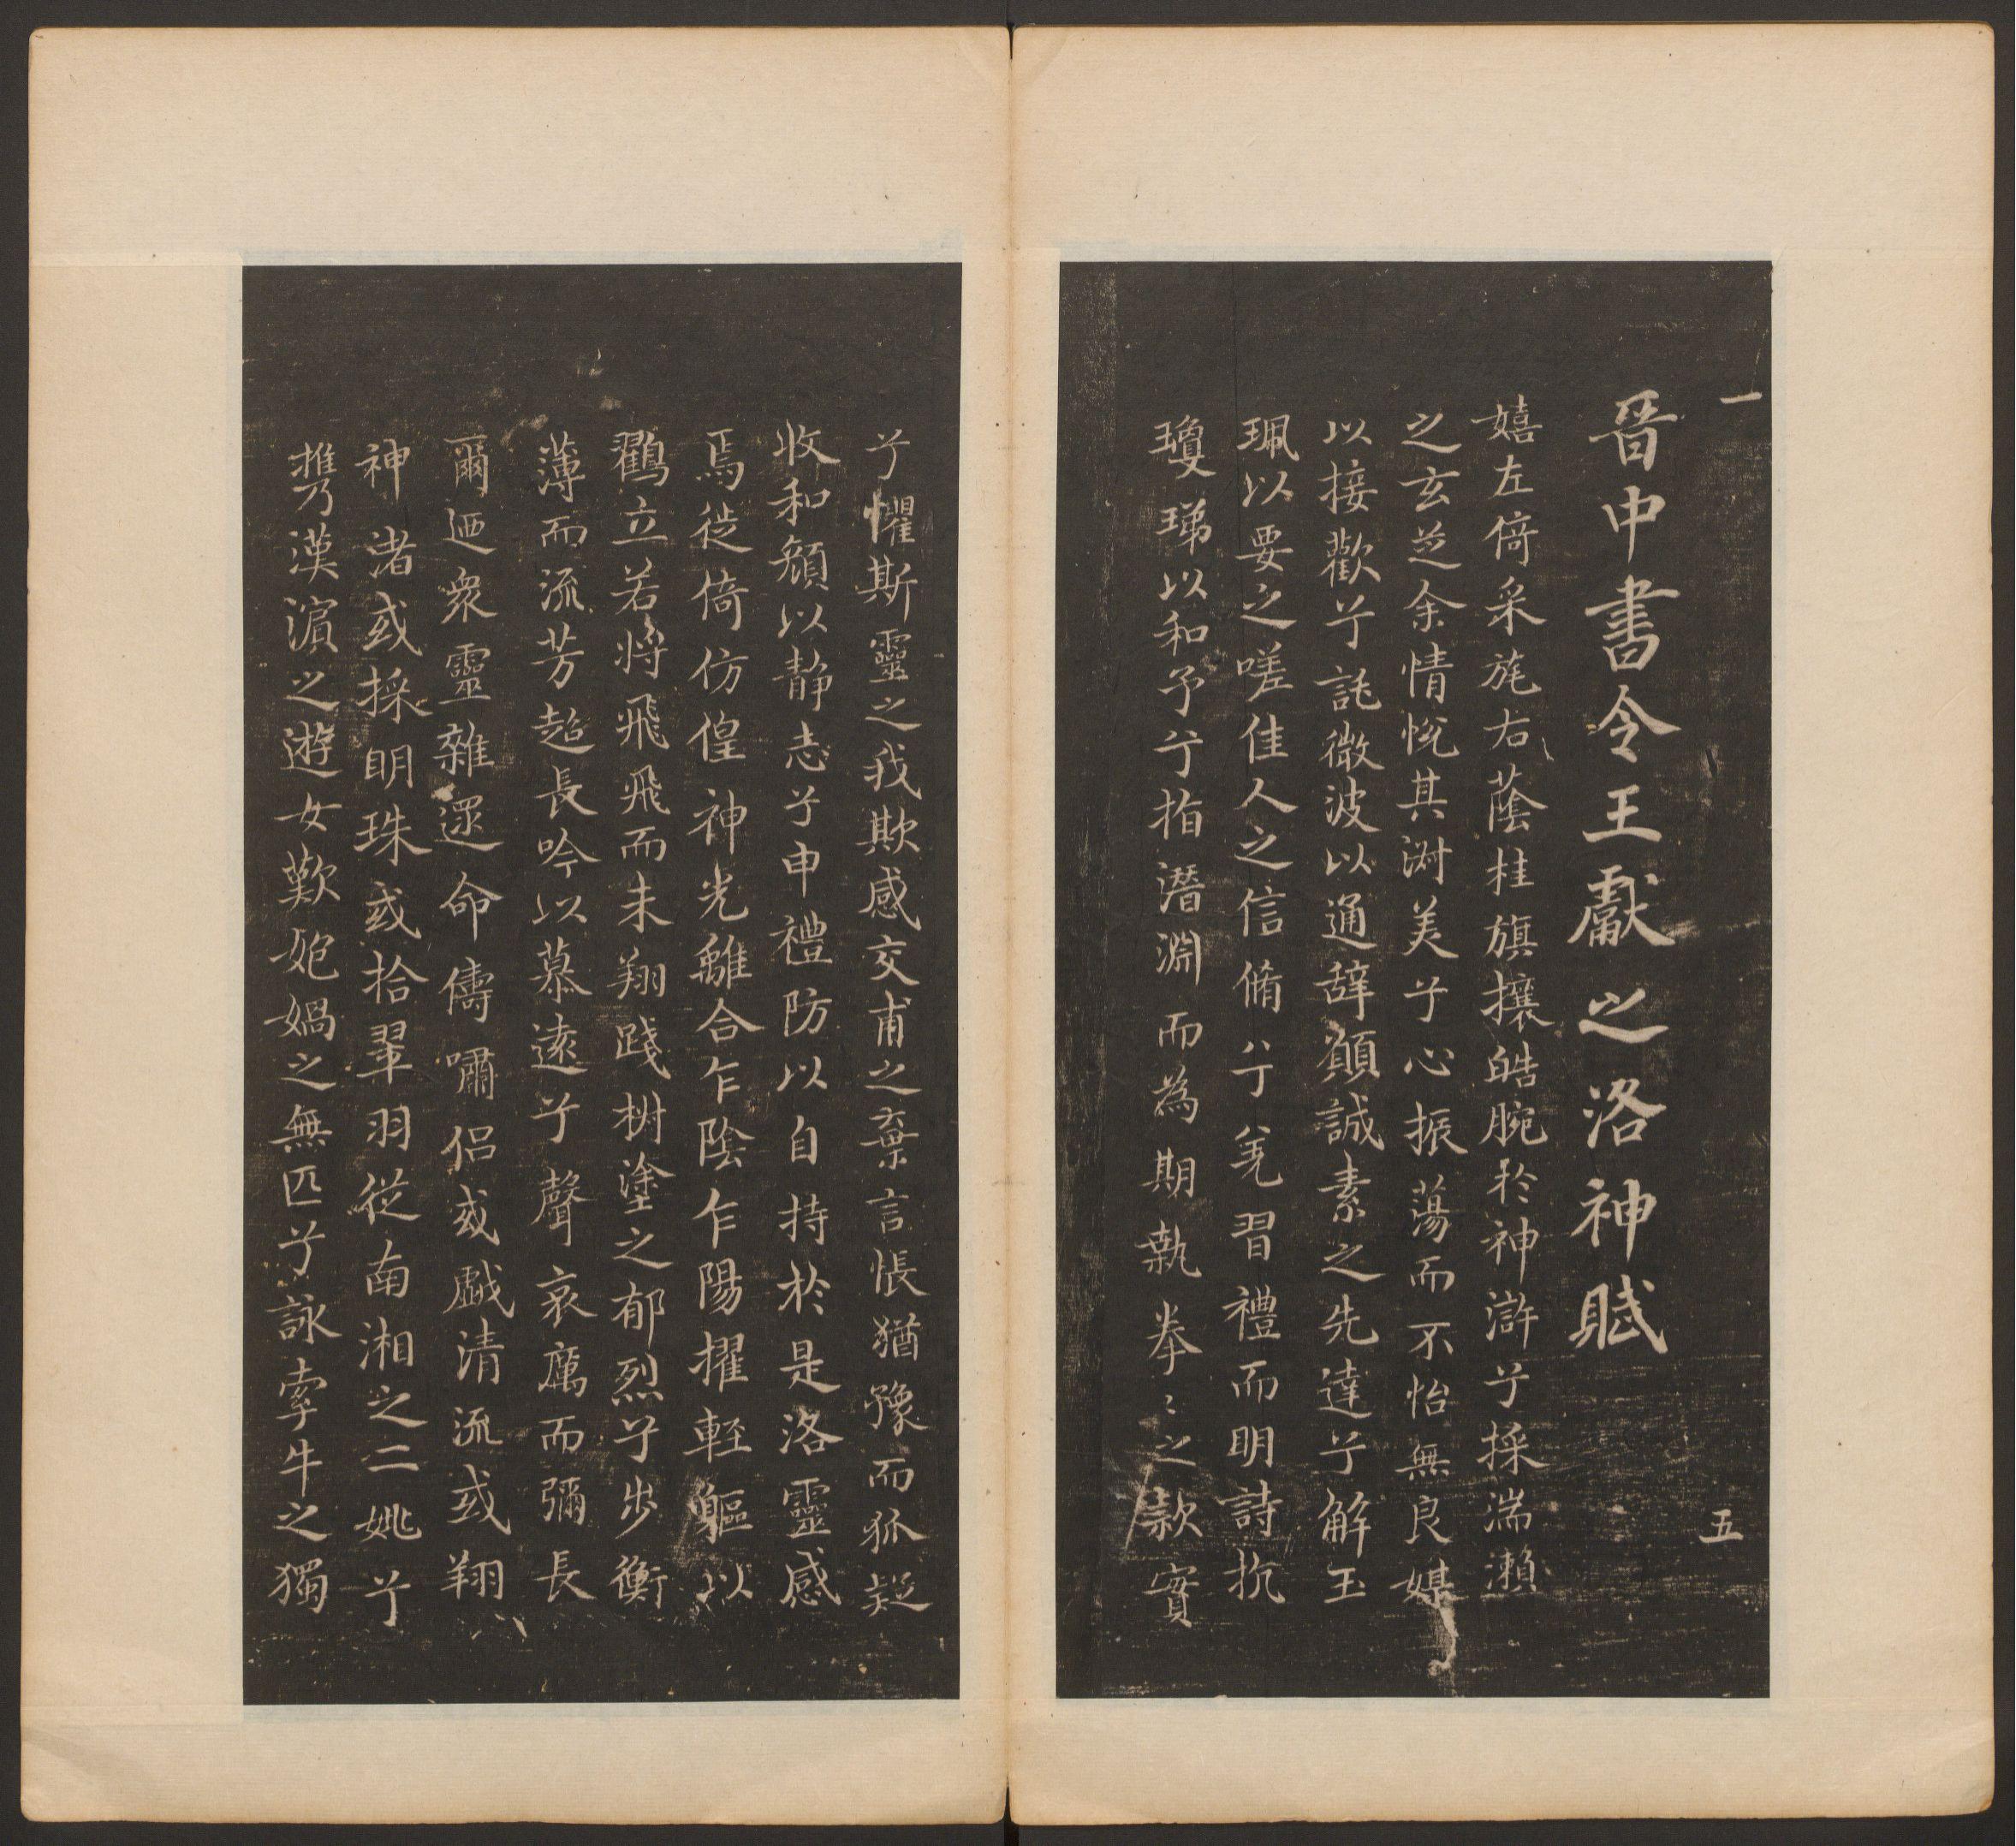 一 五
晉中書令王獻之洛神賦
嬉左倚采旄右蔭桂旗攘皓腕於神滸兮採湍瀨
之玄芝余情悅其淑美兮心振蕩而不怡無良媒
以接歡兮託微波以通辭願誠素之先達兮解玉
珮以要之嗟佳人之信脩兮羌習禮而明詩抗
瓊珶以和予兮指潛淵而為期執拳〻之款實
兮懼斯靈之我欺感交甫之棄言悵猶豫而狐疑
收和顏以静志兮申禮防以自持於是洛靈感
焉徙倚仿偟神光離合乍陰乍陽擢輕軀以
鶴立若將飛飛而未翔踐椒塗之郁烈兮步衡
薄而流芳超長吟以慕遠兮聲哀厲而彌長
爾迺衆靈雜遝命儔嘯侶或戲清流或翔
神渚或採明珠或拾翠羽從南湘之二姚兮
攜漢濱之遊女歎匏媧之無匹兮詠牽牛之獨